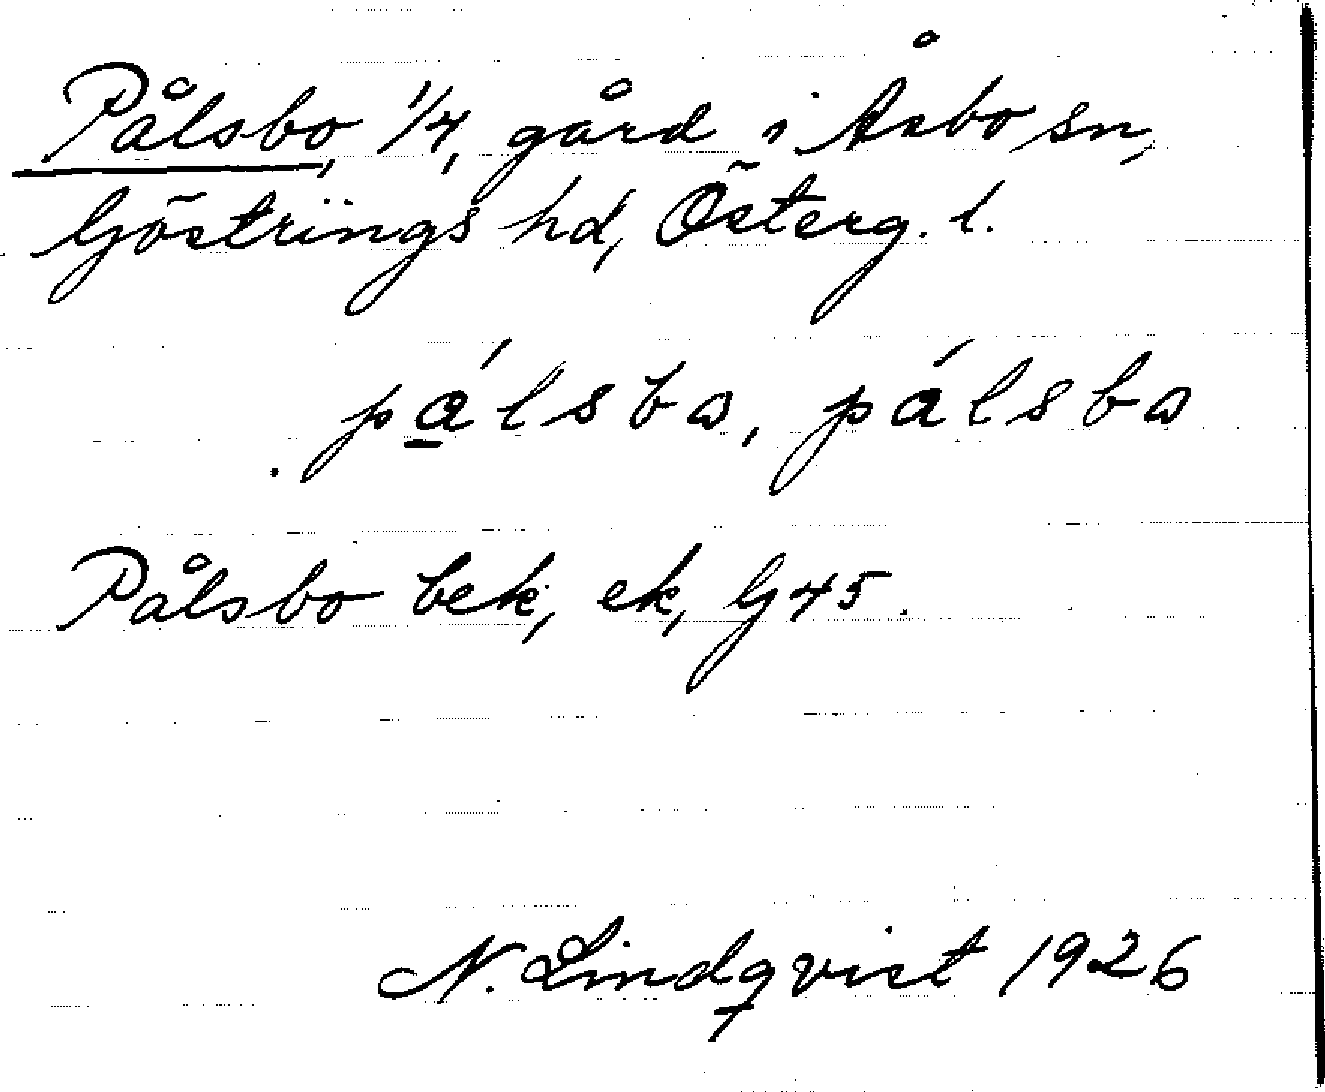 Pålsbo, 1/4, gård i Åsbo sn,
Göstrings hd, Österg. l.
pá̲lsbɷ, pálsbɷ
Pålsbo bek, ek, G 45.
N. Lindqvist 1926